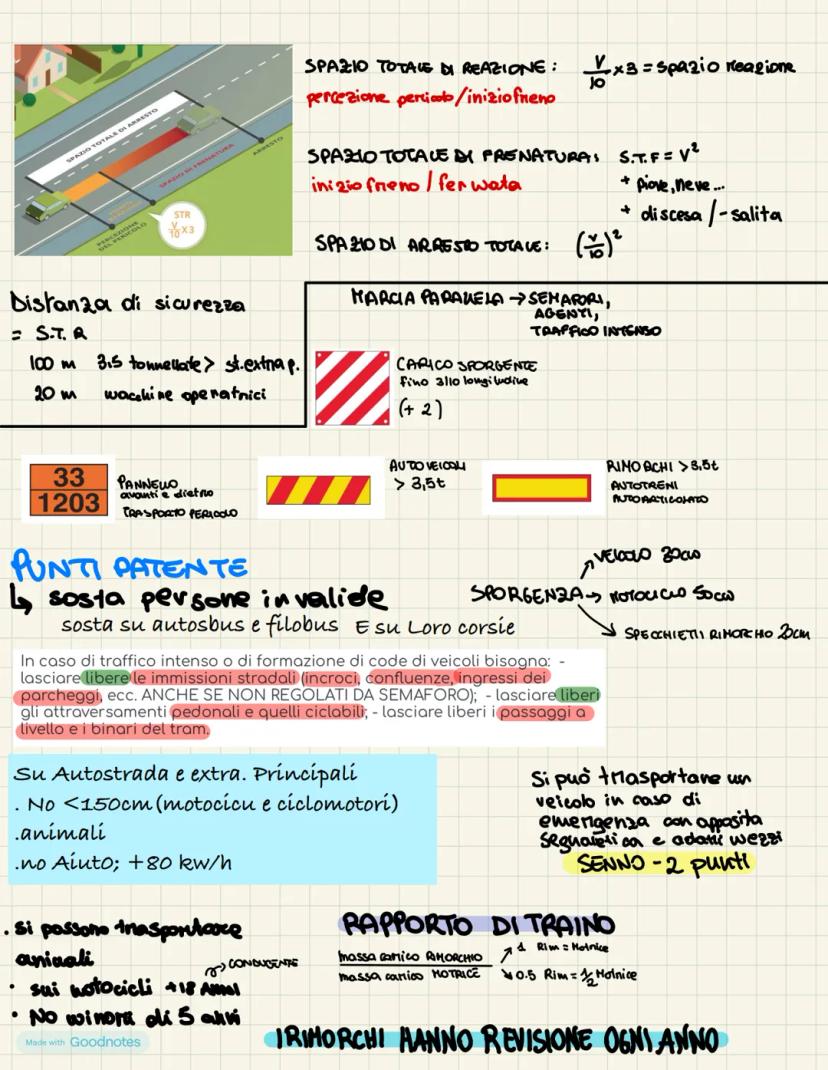 SPAZIO TOTALE DI ARRESTO
SPAZIO DI FRENATURA
ARRESTO
PERCEZIONE
DEL PERICOLO
STR
V/10 X3
SPAZIO TOTALE DI REAZIONE: V/10 x3 = spazio reazione
percezione pericolo/inizio freno
SPAZIO TOTALE DI FRENATURA: S.T.F = V²
inizio freno / fermata
+ piove, neve...
+ discesa /- salita
SPAZIO DI ARRESTO TOTALE: (V/10)²
Distanza di sicurezza
= S.T.R
100 m 3,5 tonnellate > st.extra p.
20 m macchine operatrici
MARCIA PARALLELA → SEMAFORI,
AGENTI,
TRAFFICO INTENSO
CARICO SPORGENTE
fino 3/10 longitudine
(+2)
33
1203
PANNELLO
avanti e dietro
TRASPORTO PERICOLO
AUTOVEICOLI
> 3,5t
RIMORCHI > 3,5t
AUTOTRENI
AUTOARTICOLATO
PUNTI PATENTE
↳ sosta persone invalide
sosta su autosbus e filobus E su Loro corsie
SPORGENZA
→ VEICOLO 30cm
→ MOTOCICLO 50cm
→ SPECCHIETTI RIMORCHIO 20cm
In caso di traffico intenso o di formazione di code di veicoli bisogna: -
lasciare libere le immissioni stradali (incroci, confluenze, ingressi dei
parcheggi, ecc. ANCHE SE NON REGOLATI DA SEMAFORO); - lasciare liberi
gli attraversamenti pedonali e quelli ciclabili; - lasciare liberi i passaggi a
livello e i binari del tram.
Su Autostrada e extra. Principali
. No <150cm (motocicu e ciclomotori)
.animali
.no AiutO; +80 kw/h
Si può trasportare un
veicolo in caso di
emergenza con apposita
segnaletica e adatti mezzi
SENNO - 2 punti
. si possono trasportare
animali
• sui motocicli +18 ANNI → CONDUCENTE
• No minori di 5 anni
RAPPORTO DI TRAINO
massa carico RIMORCHIO ↗ 1 Rim = Motrice
massa carico MOTRICE ↘ 0.5 Rim = 1/2 Motrice
I RIMORCHI HANNO REVISIONE OGNI ANNO
Made with Goodnotes